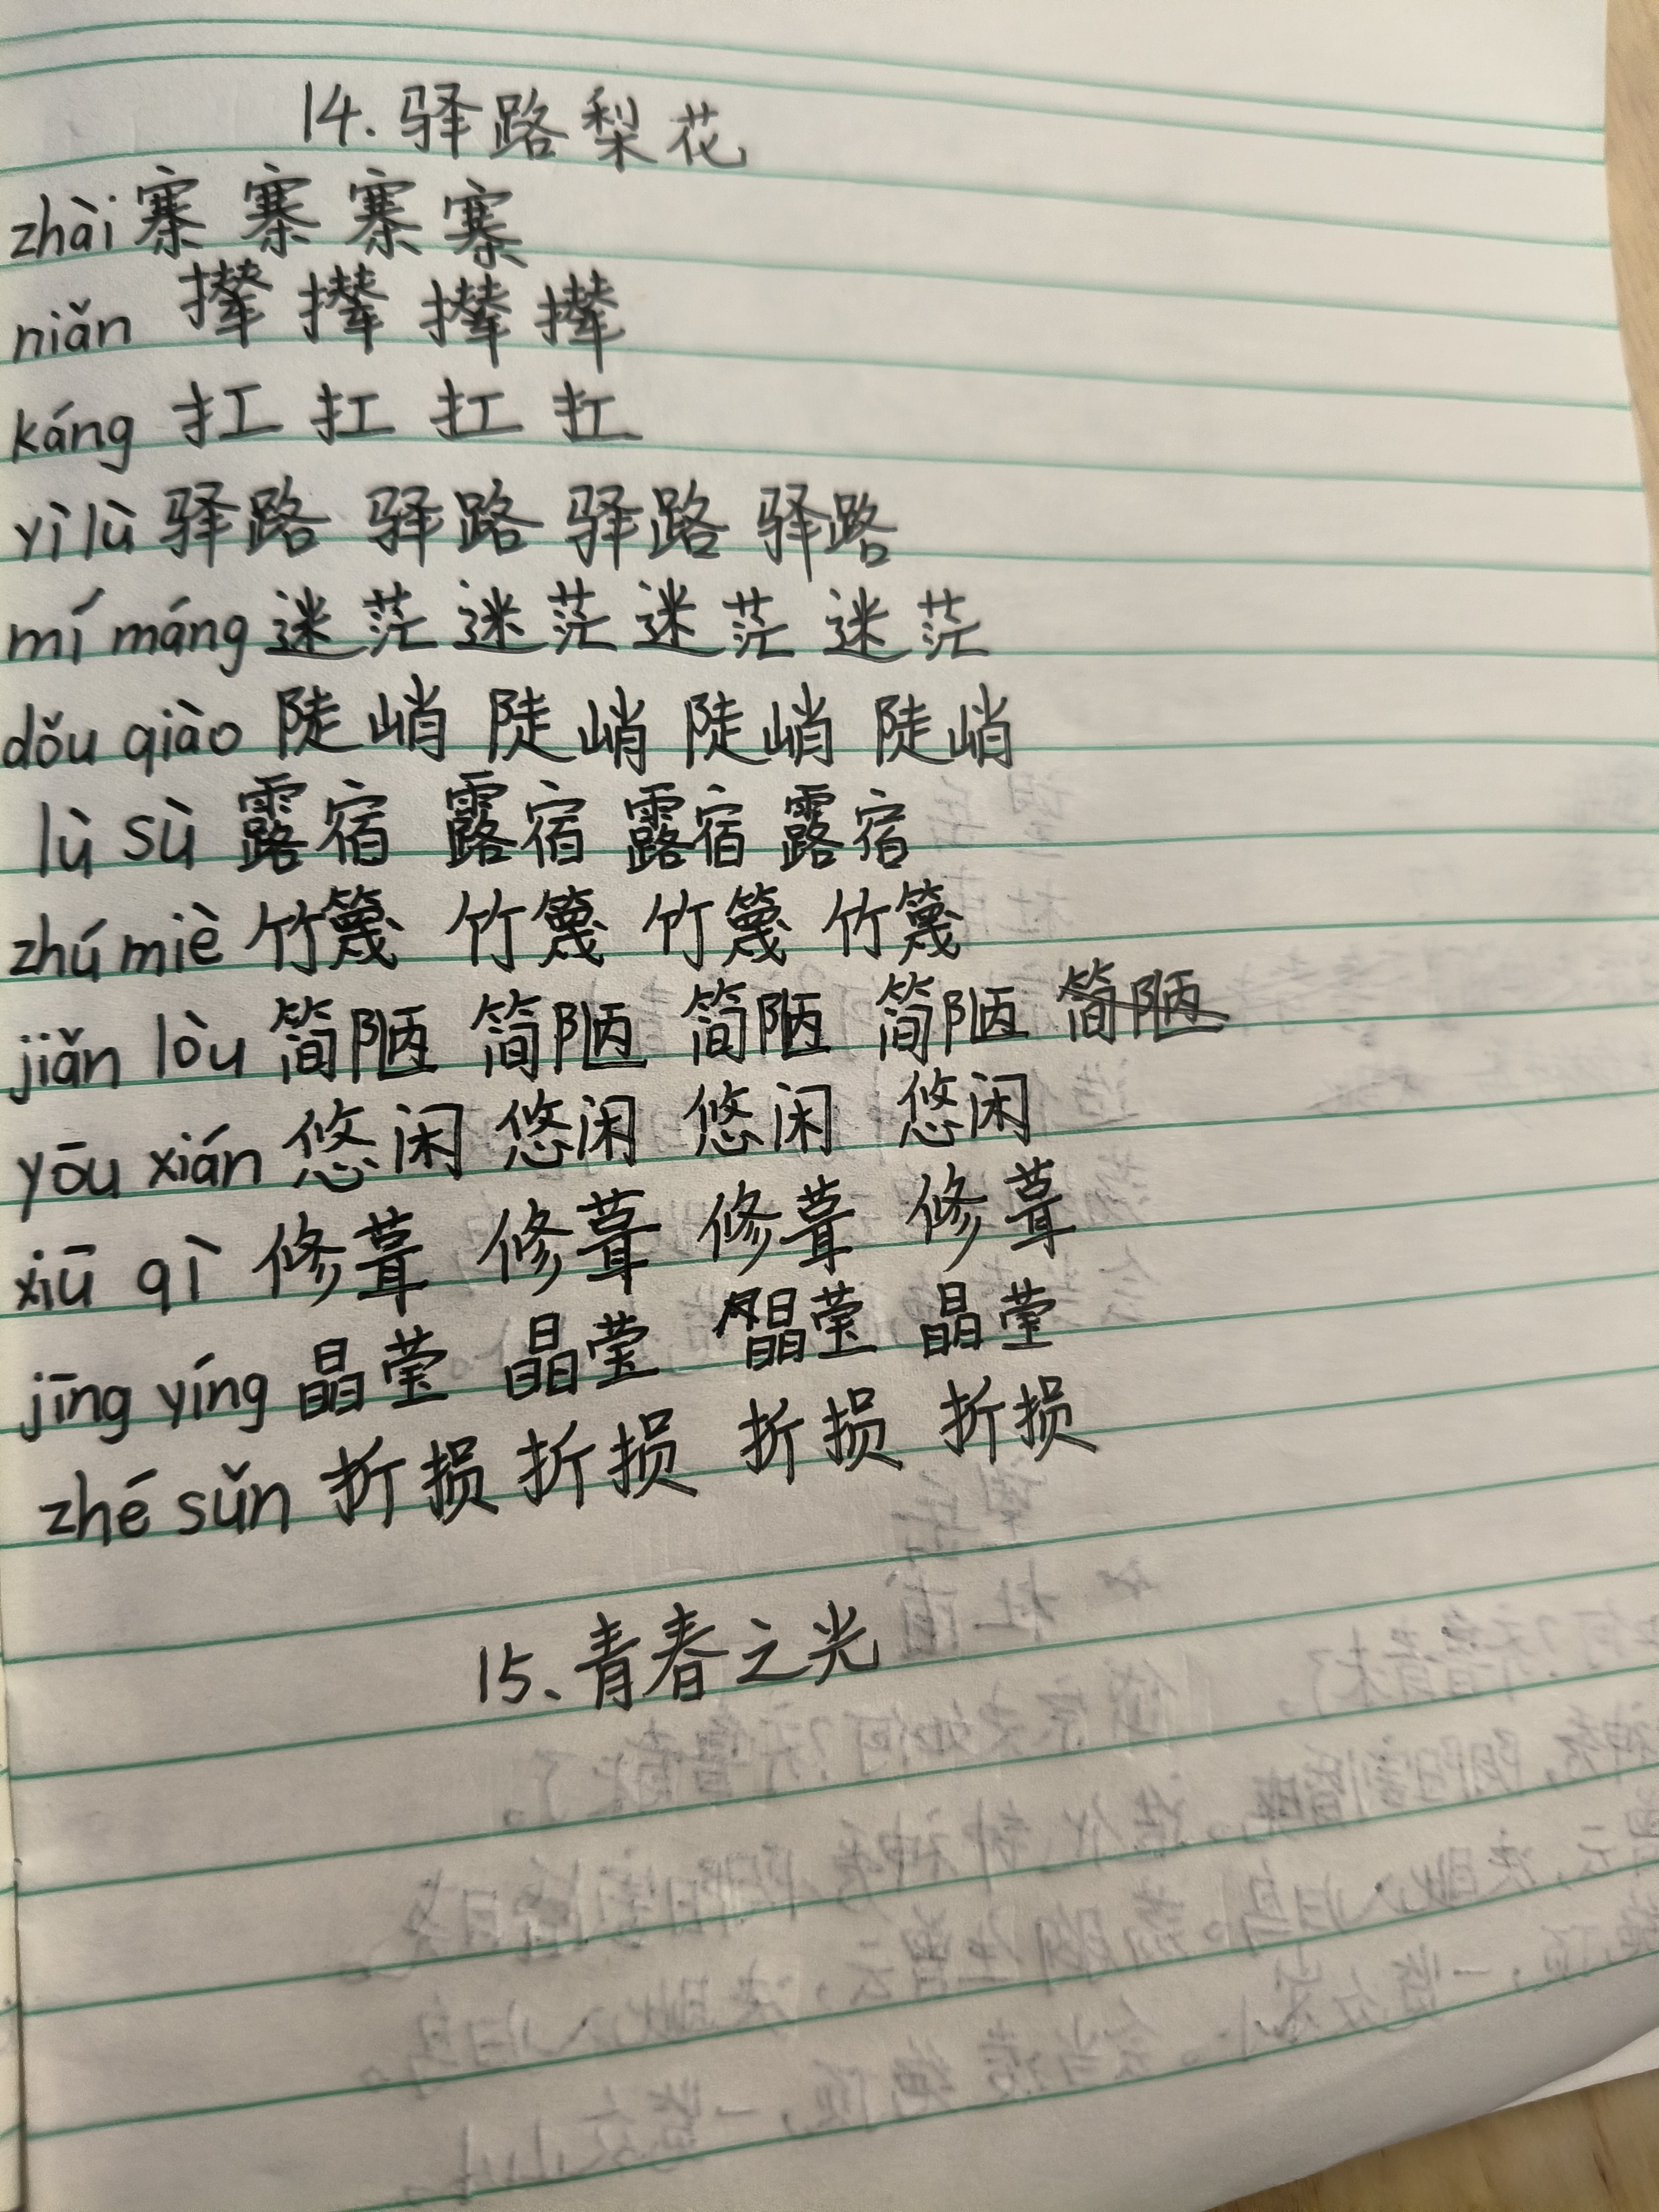 14. 驿路梨花
zhài 寨 寨 寨 寨
niǎn 撵 撵 撵 撵
káng 扛 扛 扛 扛
yì lù 驿路 驿路 驿路 驿路
mí máng 迷茫 迷茫 迷茫 迷茫
dǒu qiào 陡峭 陡峭 陡峭 陡峭
lù sù 露宿 露宿 露宿 露宿
zhú miè 竹篾 竹篾 竹篾 竹篾
jiǎn lòu 简陋 简陋 简陋 简陋 简陋
yōu xián 悠闲 悠闲 悠闲 悠闲
xiū qì 修葺 修葺 修葺 修葺
jīng yíng 晶莹 晶莹 晶莹 晶莹
zhé sǔn 折损 折损 折损 折损
15、青春之光